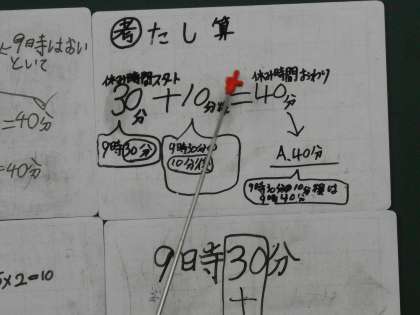 9時はおい
といて
=40分
=40分
×2=10
考 たし算
休み時間スタート
休み時間おわり
30分+10分後=40分
9時30分
9時30分の
10分後
A.40分
9時30分の10分後は
9時40分
9時30分
+